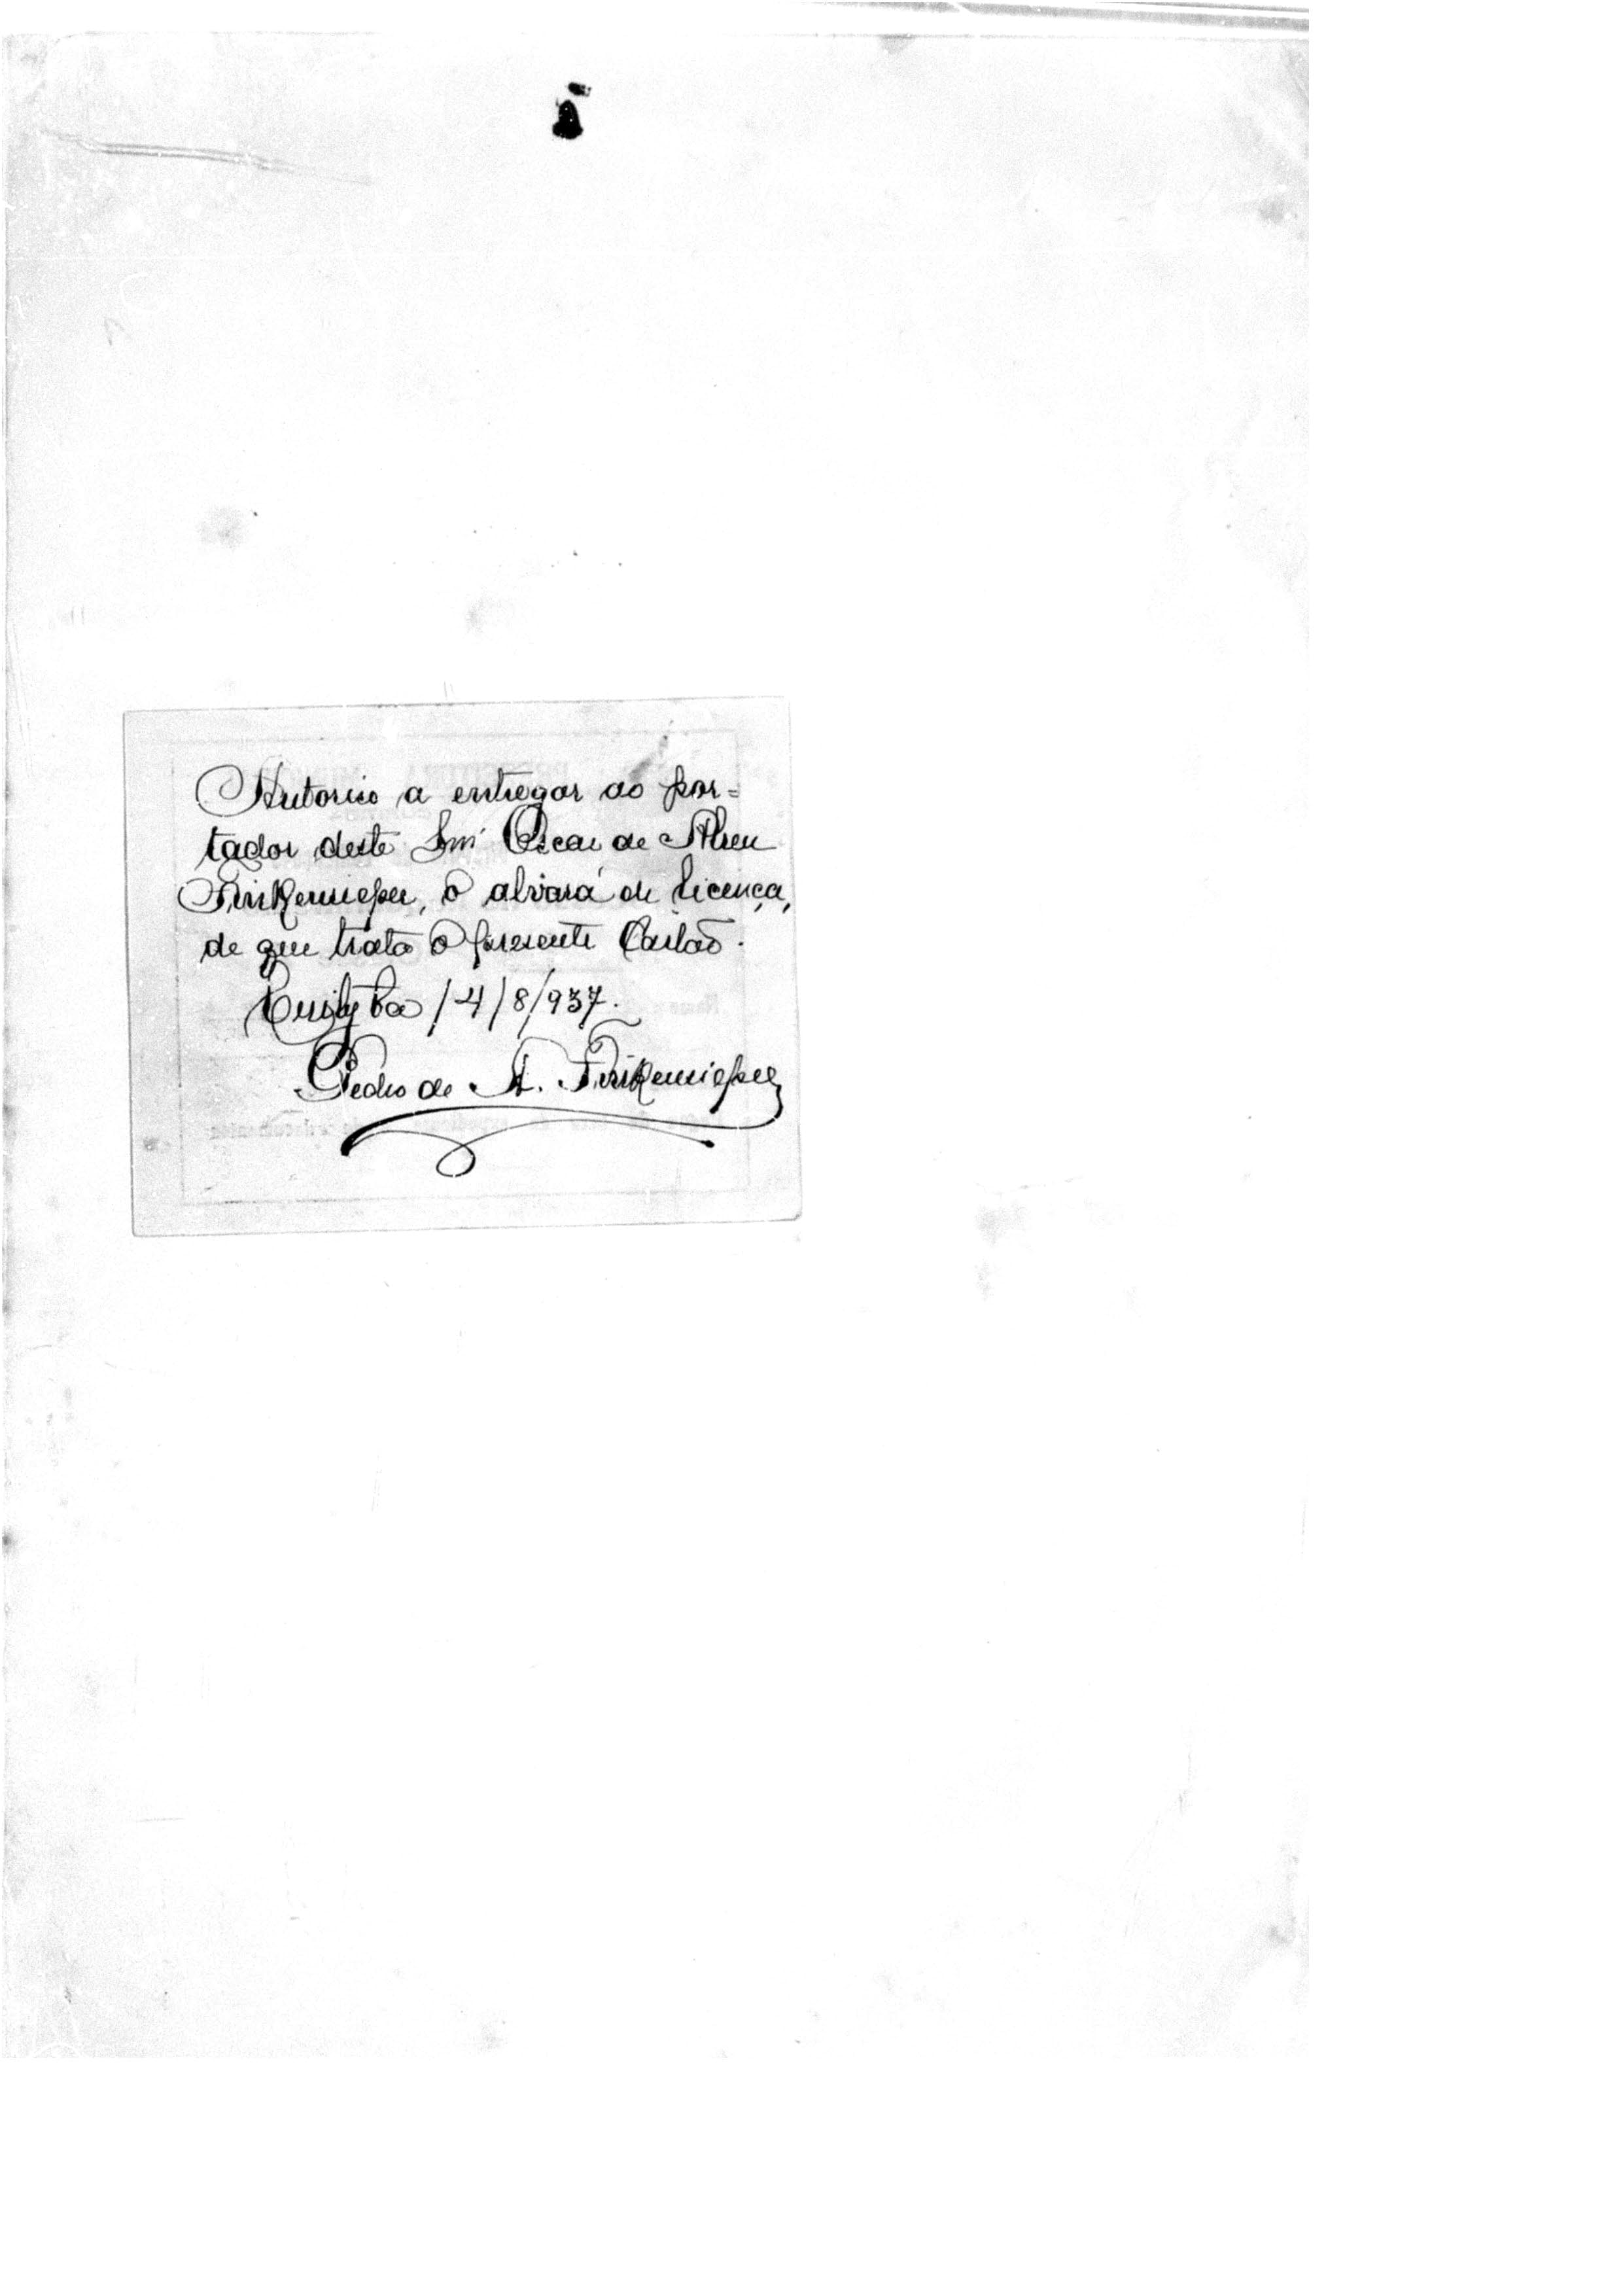 Autoriso a entregar ao por=
tador deste Snr. Oscar de Abreu
Finkensieper, o alvará de licença,
de que trata o presente Cartão.
Curityba /4/8/937.
Pedro de A. Finkensieper